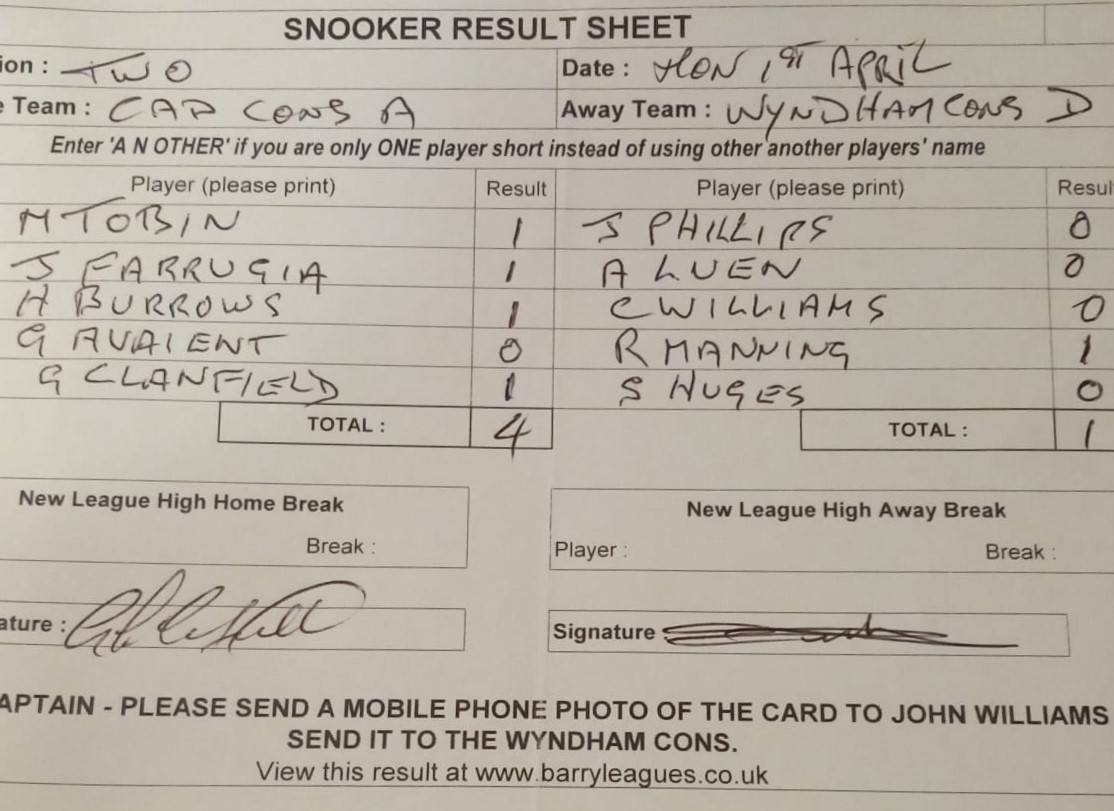 SNOOKER RESULT SHEET
ion : TWO Date : MON 1ST APRIL
e Team : CAD CONS A Away Team : WYNDHAM CONS D
Enter 'A N OTHER' if you are only ONE player short instead of using other another players' name
Player (please print) Result Player (please print) Resul
M TOBIN 1 J PHILLIPS 0
J FARRUGIA 1 A LUEN 0
H BURROWS 1 C WILLIAMS 0
G AVAIENT 0 R MANNING 1
G CLANFIELD 1 S HUGES 0
TOTAL : 4 TOTAL : 1
New League High Home Break New League High Away Break
Break : Player : Break :
ature : Signature
APTAIN - PLEASE SEND A MOBILE PHONE PHOTO OF THE CARD TO JOHN WILLIAMS
SEND IT TO THE WYNDHAM CONS.
View this result at www.barryleagues.co.uk